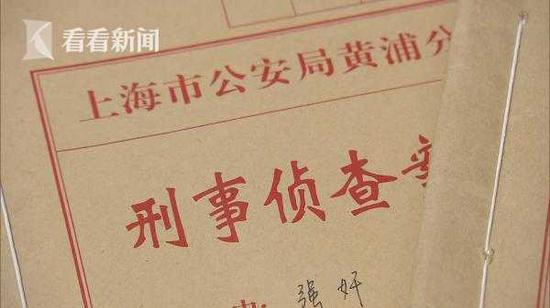 看看新闻
上海市公安局黄浦分
刑事侦查
强奸